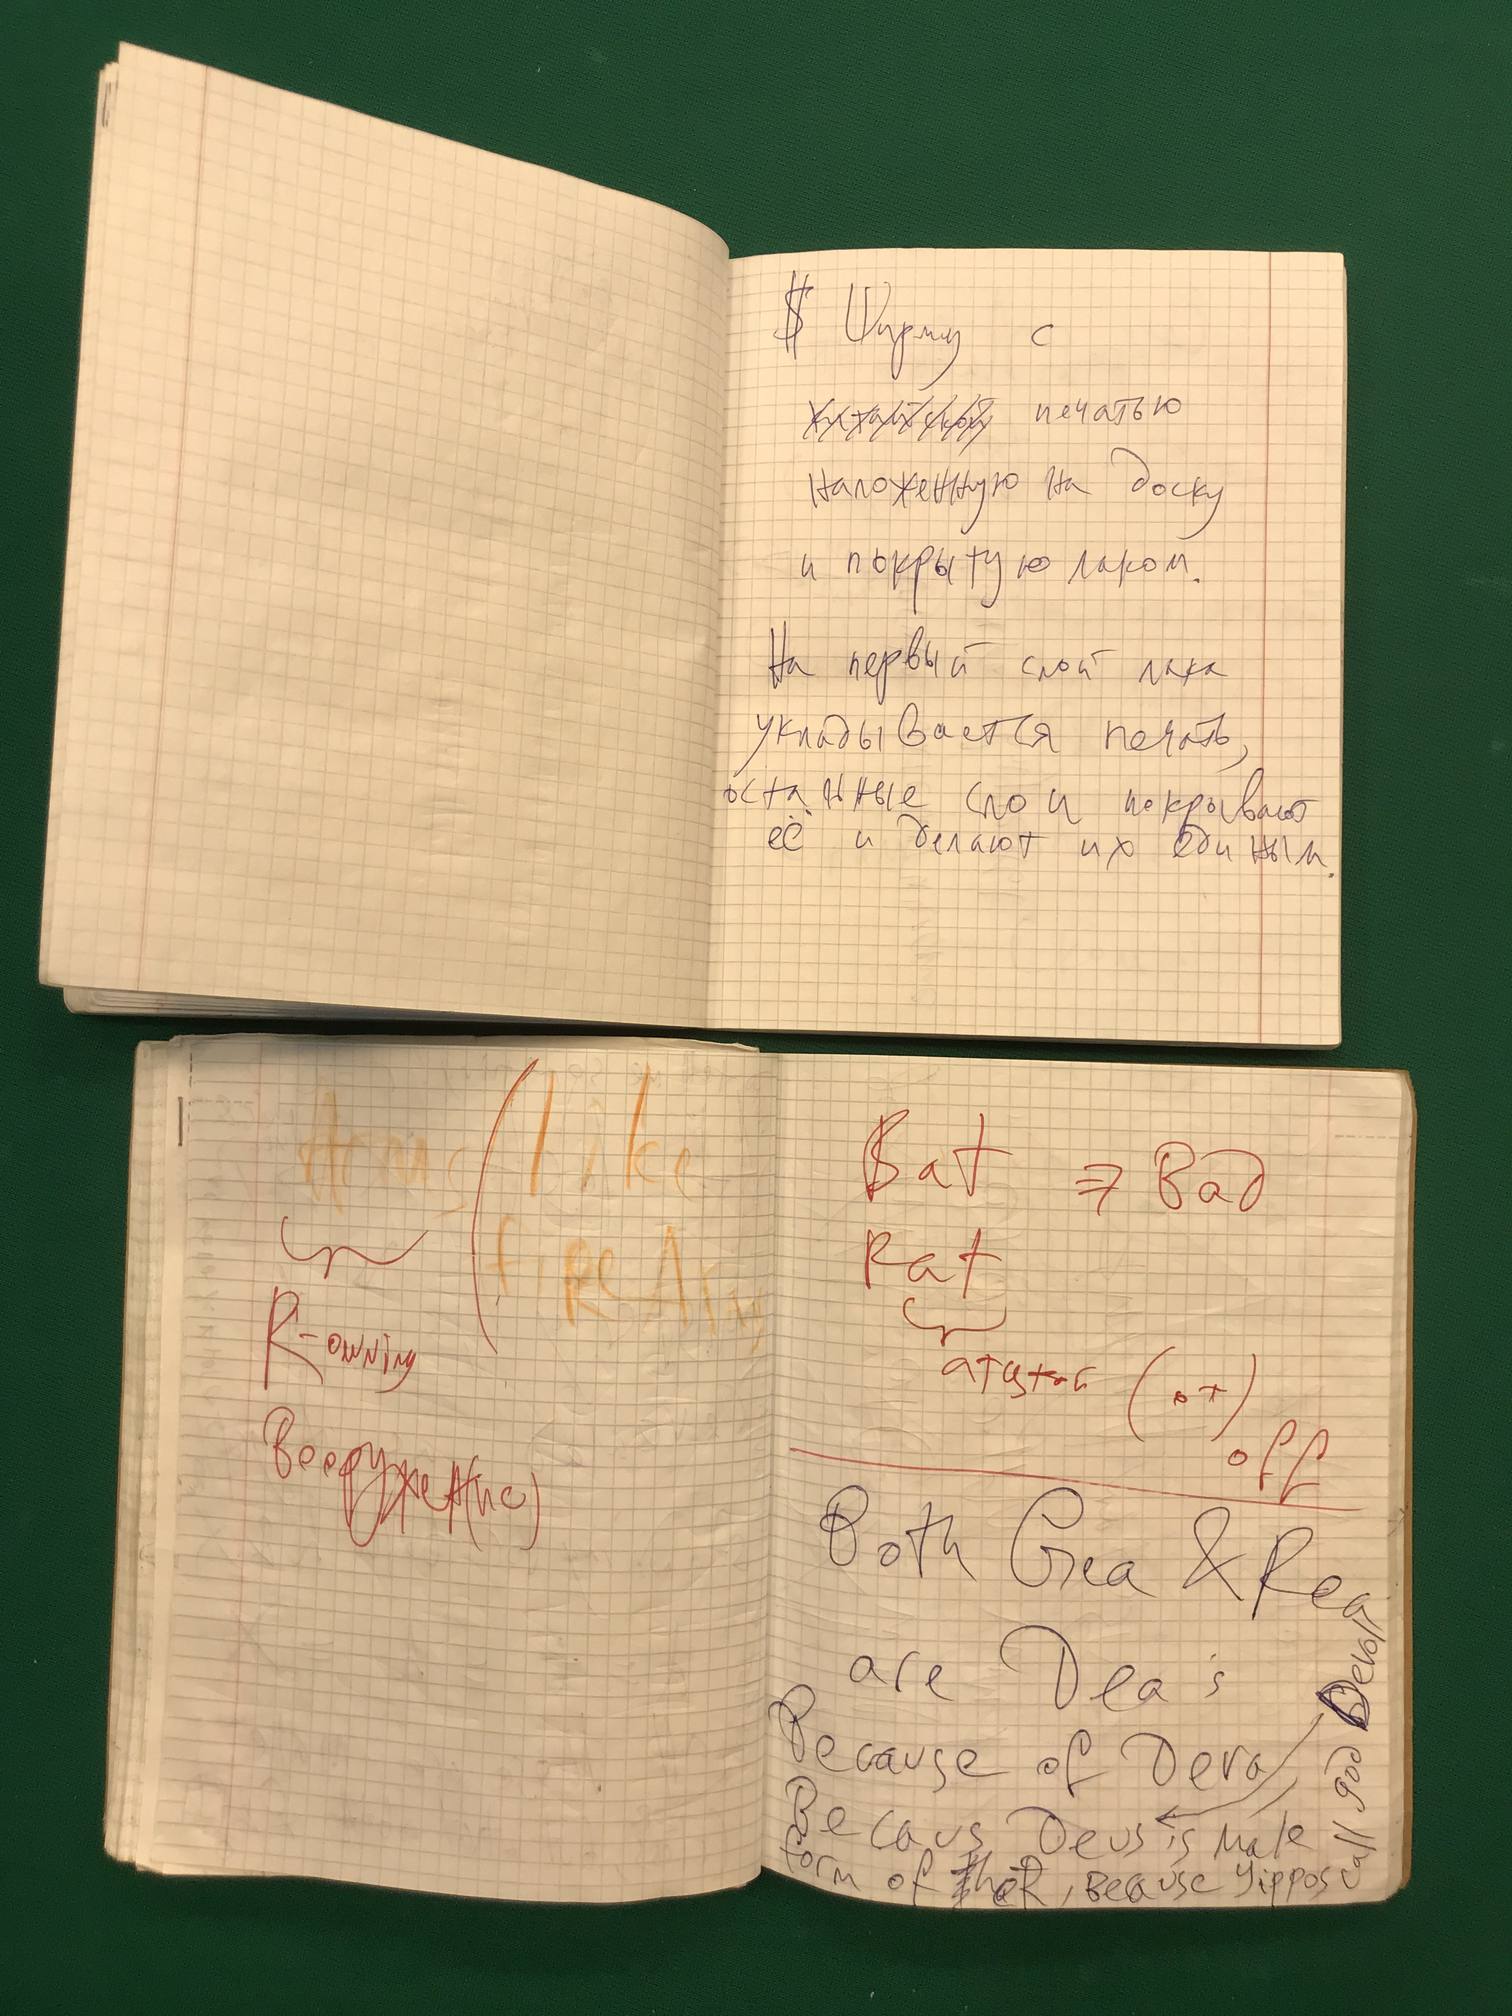 $ Ширму с
китайской печатью
наложенную на доску
и покрытую лаком.
На первый слой лака
укладывается печать,
остальные слои покрывают
её и делают их единым.
Arms (Like
fiReArm
R-owning
Вооружен(ие)
Bat => Bad
Rat
(от)
off
Both Gea & Rea
are Dea's
Because of Deva
Becaus Deus is Male
form of that, Because Yippos call god Devolt